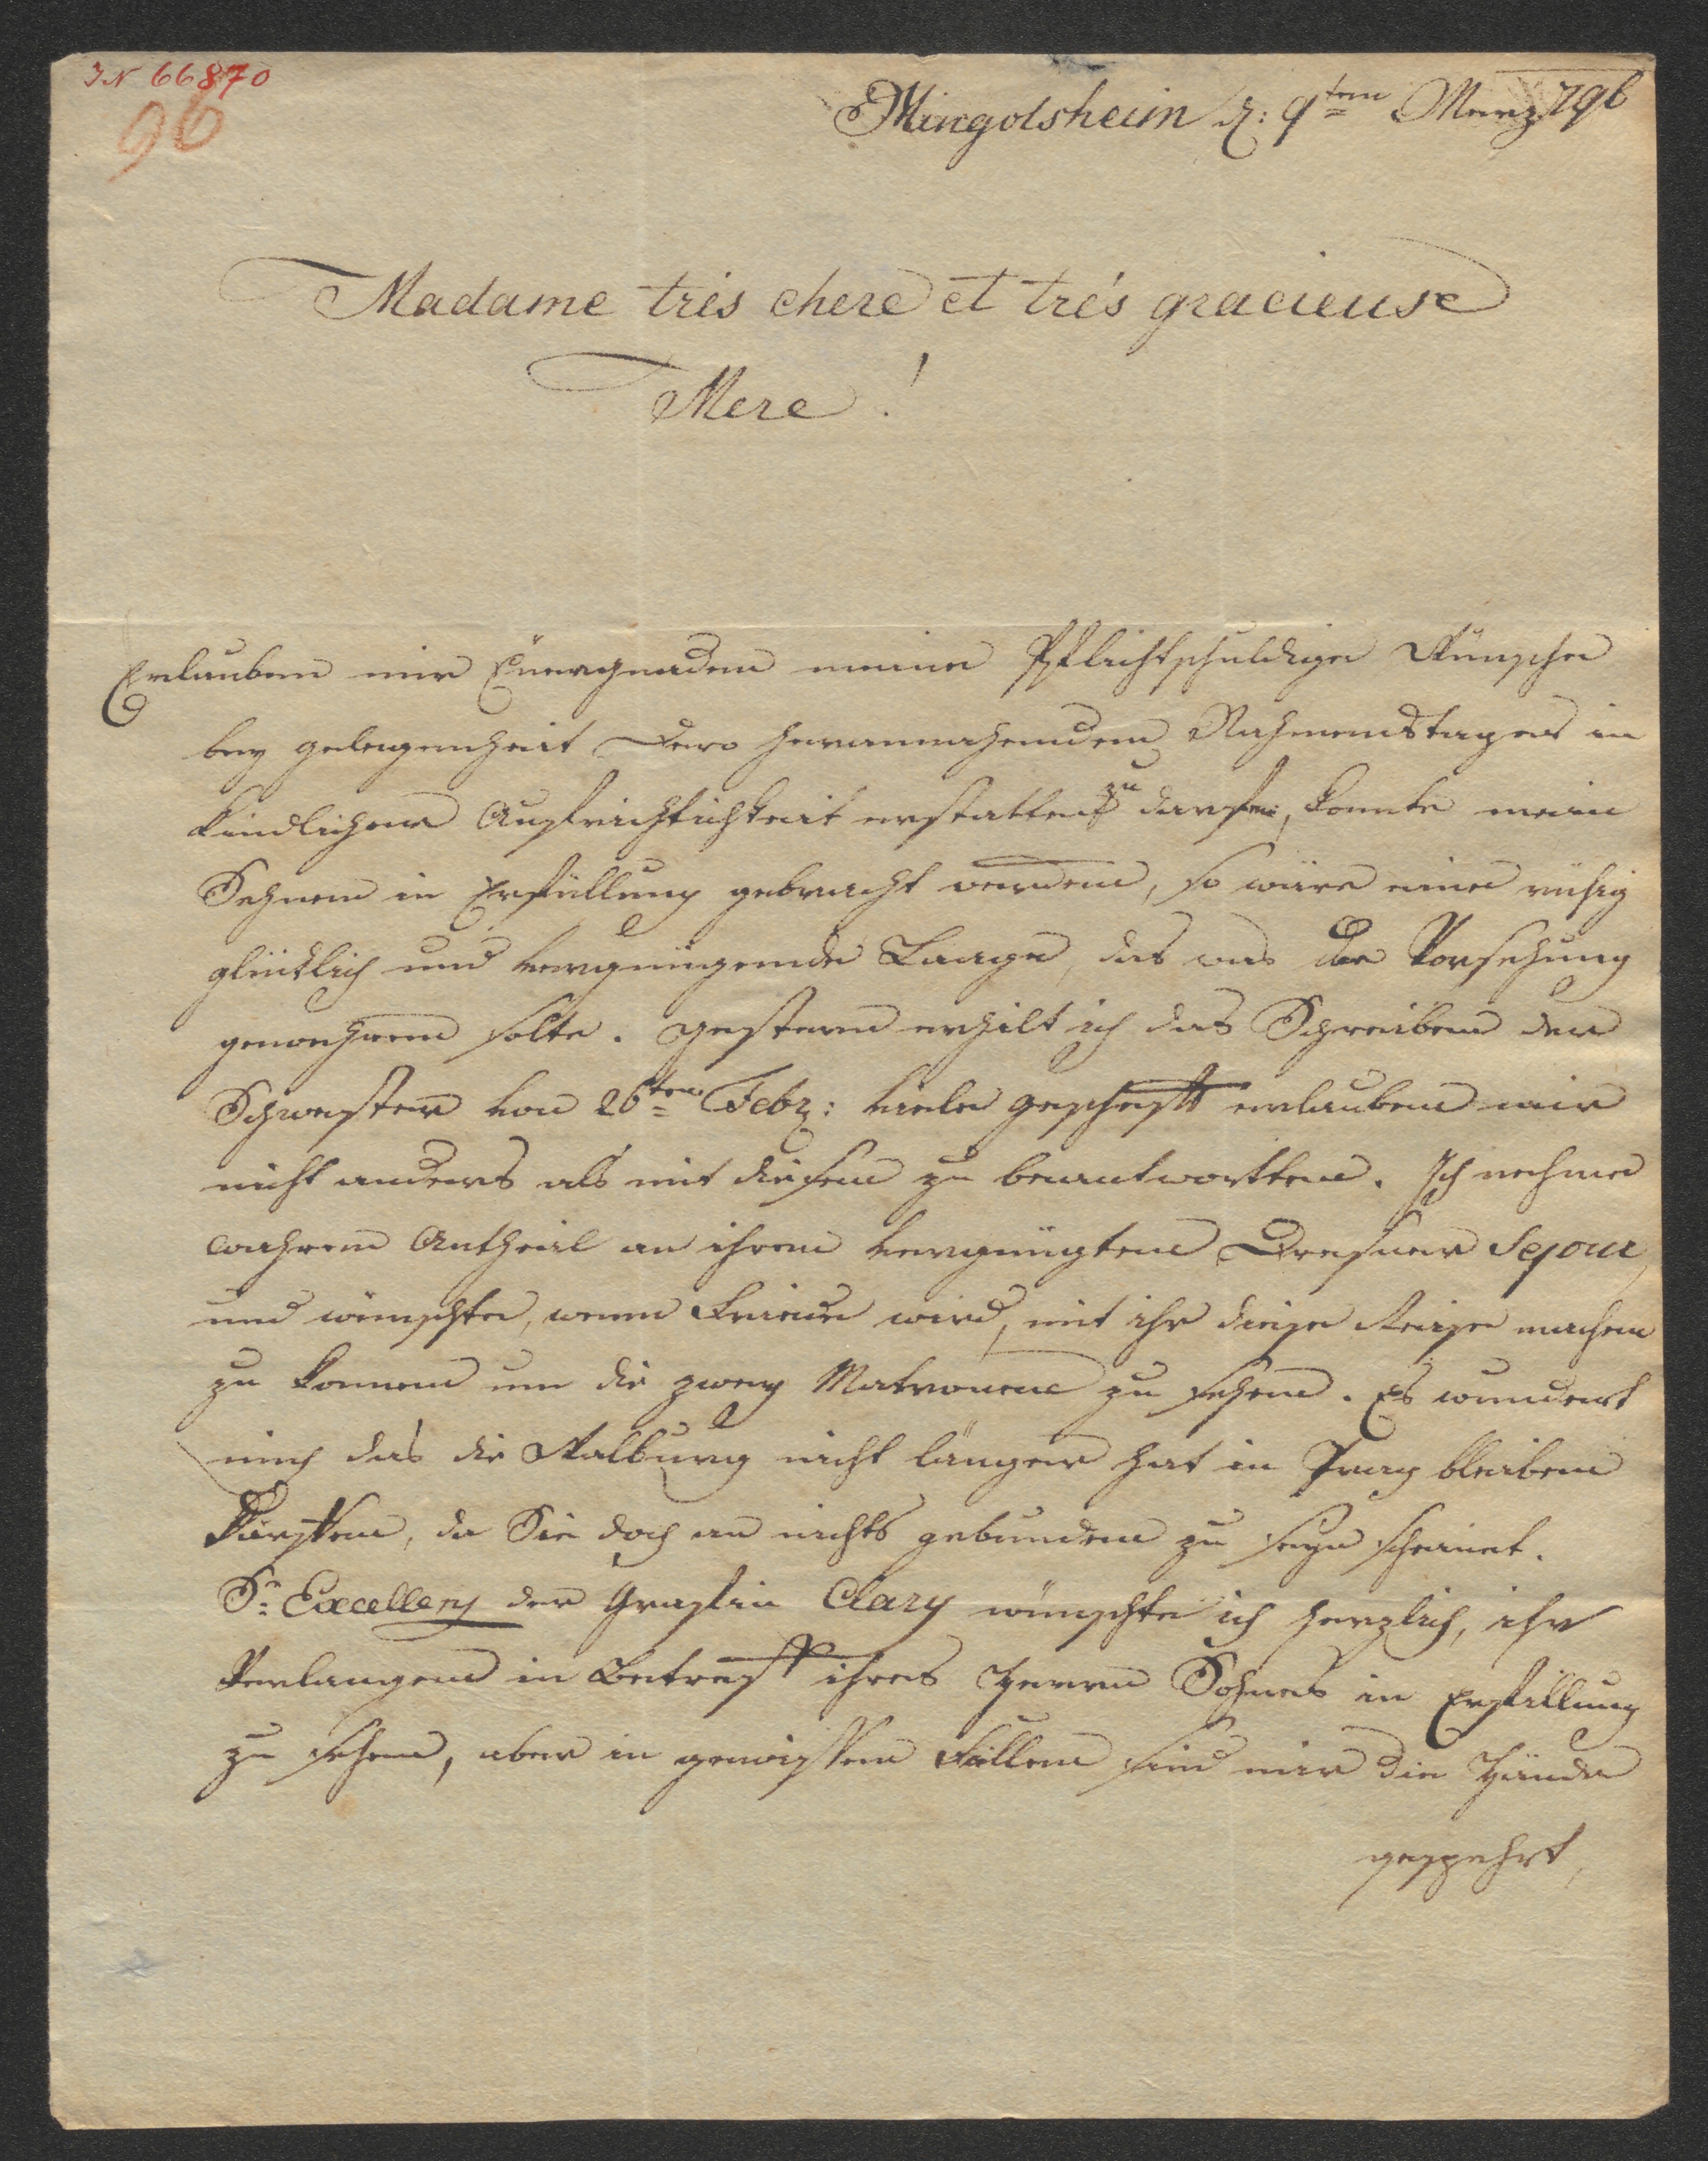 IN 66870
96
Mingolsheim d: 9ten Merz 796
Madame trés chere et trés gracieuse
Mere!
Erlauben mir Euergnaden meine Pflichtschuldige Wünsche
bey gelegenheit Dero herannahenden Nahmenstages in
kindlicher Aufrichtichkeit erstatten zu darfen, konnte mein
Sehnen in Erfüllung gebracht werden, so wäre eine ruhig
glücklich und vergnügende Laage, das was die Vorsehung
gewehren solte. gestern erhilt ich das Schreiben der
Schwester von 26ten Febr: viele geschefft erlauben mir
nicht anders als mit diesem zu beantwortten. Ich nehme
wahren Antheil an ihren vergnügten Dresner Sejour
und wünschte, wenn Friede wird, mit ihr diese Reise machen
zu konnen um die zwey Matronen zu sehen. Es wundert
mich das die Walburg nicht länger hat in Prag bleiben
därffen, da Sie doch an nichts gebunden zu seyn scheinet.
Sr Excellenz der Grafin Clary wünschte ich herzlich, ihr
Verlangen in Betreff ihres Herrn Sohnes in Erfüllung
zu sehen, aber in gewissen Fällen sind mir die Hände
gespehrt,